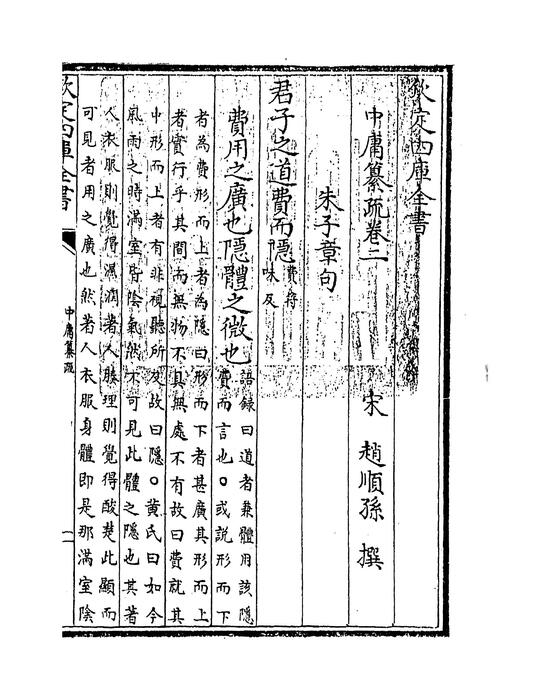 欽定四庫全書
中庸纂疏卷二
宋 趙順孫 撰
朱子章句
君子之道費而隱費符味反
費用之廣也隱體之微也語錄曰道者兼體用該隱費而言也○或說形而下
者為費形而上者為隱曰形而下者甚廣其形而上
者實行乎其間而無物不具無處不有故曰費就其
中形而上者有非視聽所及故曰隱○黃氏曰如今
風雨之時滿室皆陰氣然不可見此體之隱也其著
人衣服則覺得濕潤著人腠理則覺得酸楚此顯而
可見者用之廣也然著人衣服身體即是那滿室陰
欽定四庫全書
中庸纂疏
一